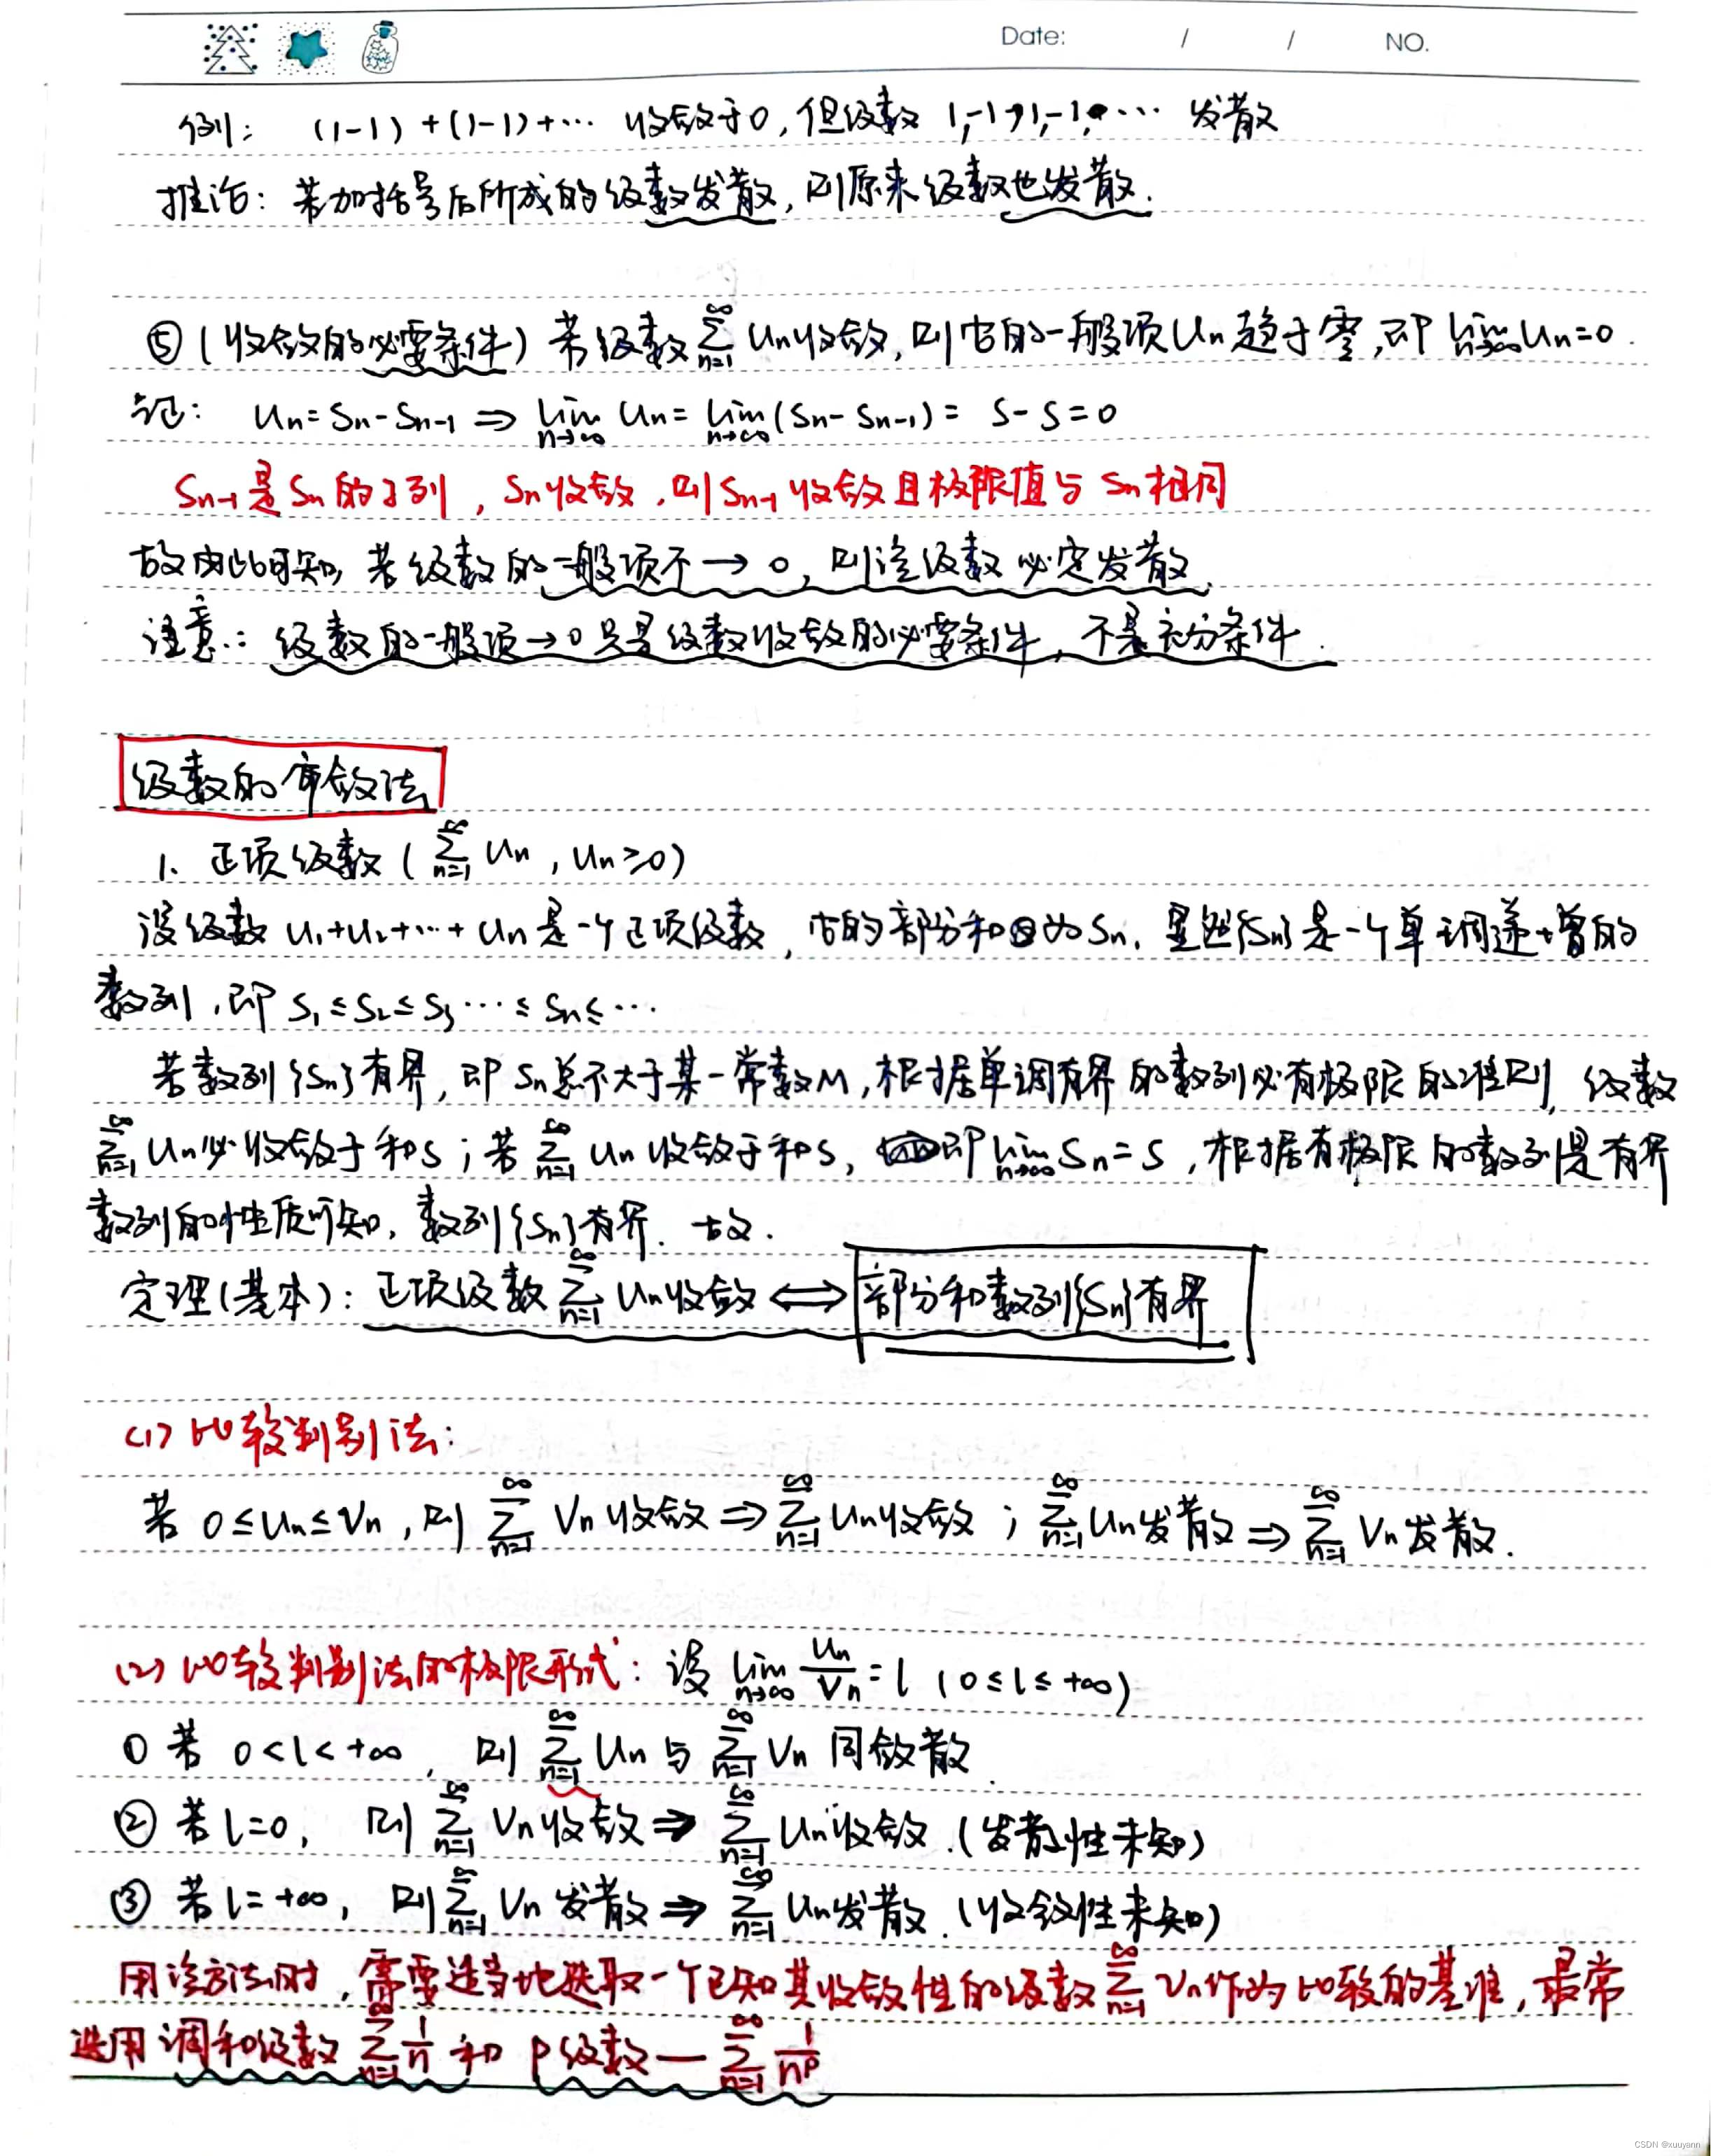 Date: / / NO.
例: (1-1)+(1-1)+… 收敛于0, 但级数 1,-1,1,-1,… 发散
推论: 若加括号后所成的级数发散, 则原来级数也发散.
⑤ (收敛的必要条件) 若级数 ∑_{n=1}^{∞} Un 收敛, 则它的一般项 Un 趋于零, 即 lim_{n→∞} Un=0.
记: Un=Sn-Sn-1 ⇒ lim_{n→∞} Un = lim_{n→∞}(Sn-Sn-1) = S-S=0
Sn-1是Sn的子列, Sn收敛, 则Sn-1收敛且极限值与Sn相同
故由此可知, 若级数的一般项不→0, 则该级数必定发散.
注意: 级数的一般项→0只是级数收敛的必要条件, 不是充分条件.
级数的审敛法
1. 正项级数 (∑_{n=1}^{∞} Un, Un≥0)
设级数 U1+U2+…+Un 是一个正项级数, 它的部分和为Sn. 显然{Sn}是一个单调递增的
数列, 即 S1≤S2≤S3…≤Sn≤…
若数列{Sn}有界, 即Sn总不大于某一常数M, 根据单调有界的数列必有极限的准则, 级数
∑_{n=1}^{∞} Un必收敛于和S; 若 ∑_{n=1}^{∞} Un 收敛于和S, 即 lim_{n→∞} Sn=S, 根据有极限的数列是有界
数列的性质可知, 数列{Sn}有界. 故.
定理(基本): 正项级数 ∑_{n=1}^{∞} Un收敛 ⟺ 部分和数列{Sn}有界
(1) 比较判别法:
若 0≤Un≤Vn, 则 ∑_{n=1}^{∞} Vn收敛 ⇒ ∑_{n=1}^{∞} Un收敛; ∑_{n=1}^{∞} Un发散 ⇒ ∑_{n=1}^{∞} Vn发散.
(2) 比较判别法的极限形式: 设 lim_{n→∞} Un/Vn = l (0≤l≤+∞)
① 若 0<l<+∞, 则 ∑_{n=1}^{∞} Un 与 ∑_{n=1}^{∞} Vn 同敛散.
② 若 l=0, 则 ∑_{n=1}^{∞} Vn收敛 ⇒ ∑_{n=1}^{∞} Un收敛. (发散性未知)
③ 若 l=+∞, 则 ∑_{n=1}^{∞} Vn发散 ⇒ ∑_{n=1}^{∞} Un发散. (收敛性未知)
用该方法时, 需要适当地选取一个已知其收敛性的级数 ∑_{n=1}^{∞} Vn作为比较的基准, 最常
选用调和级数 ∑_{n=1}^{∞} 1/n 和 P级数— ∑_{n=1}^{∞} 1/n^p
CSDN @xuuyann